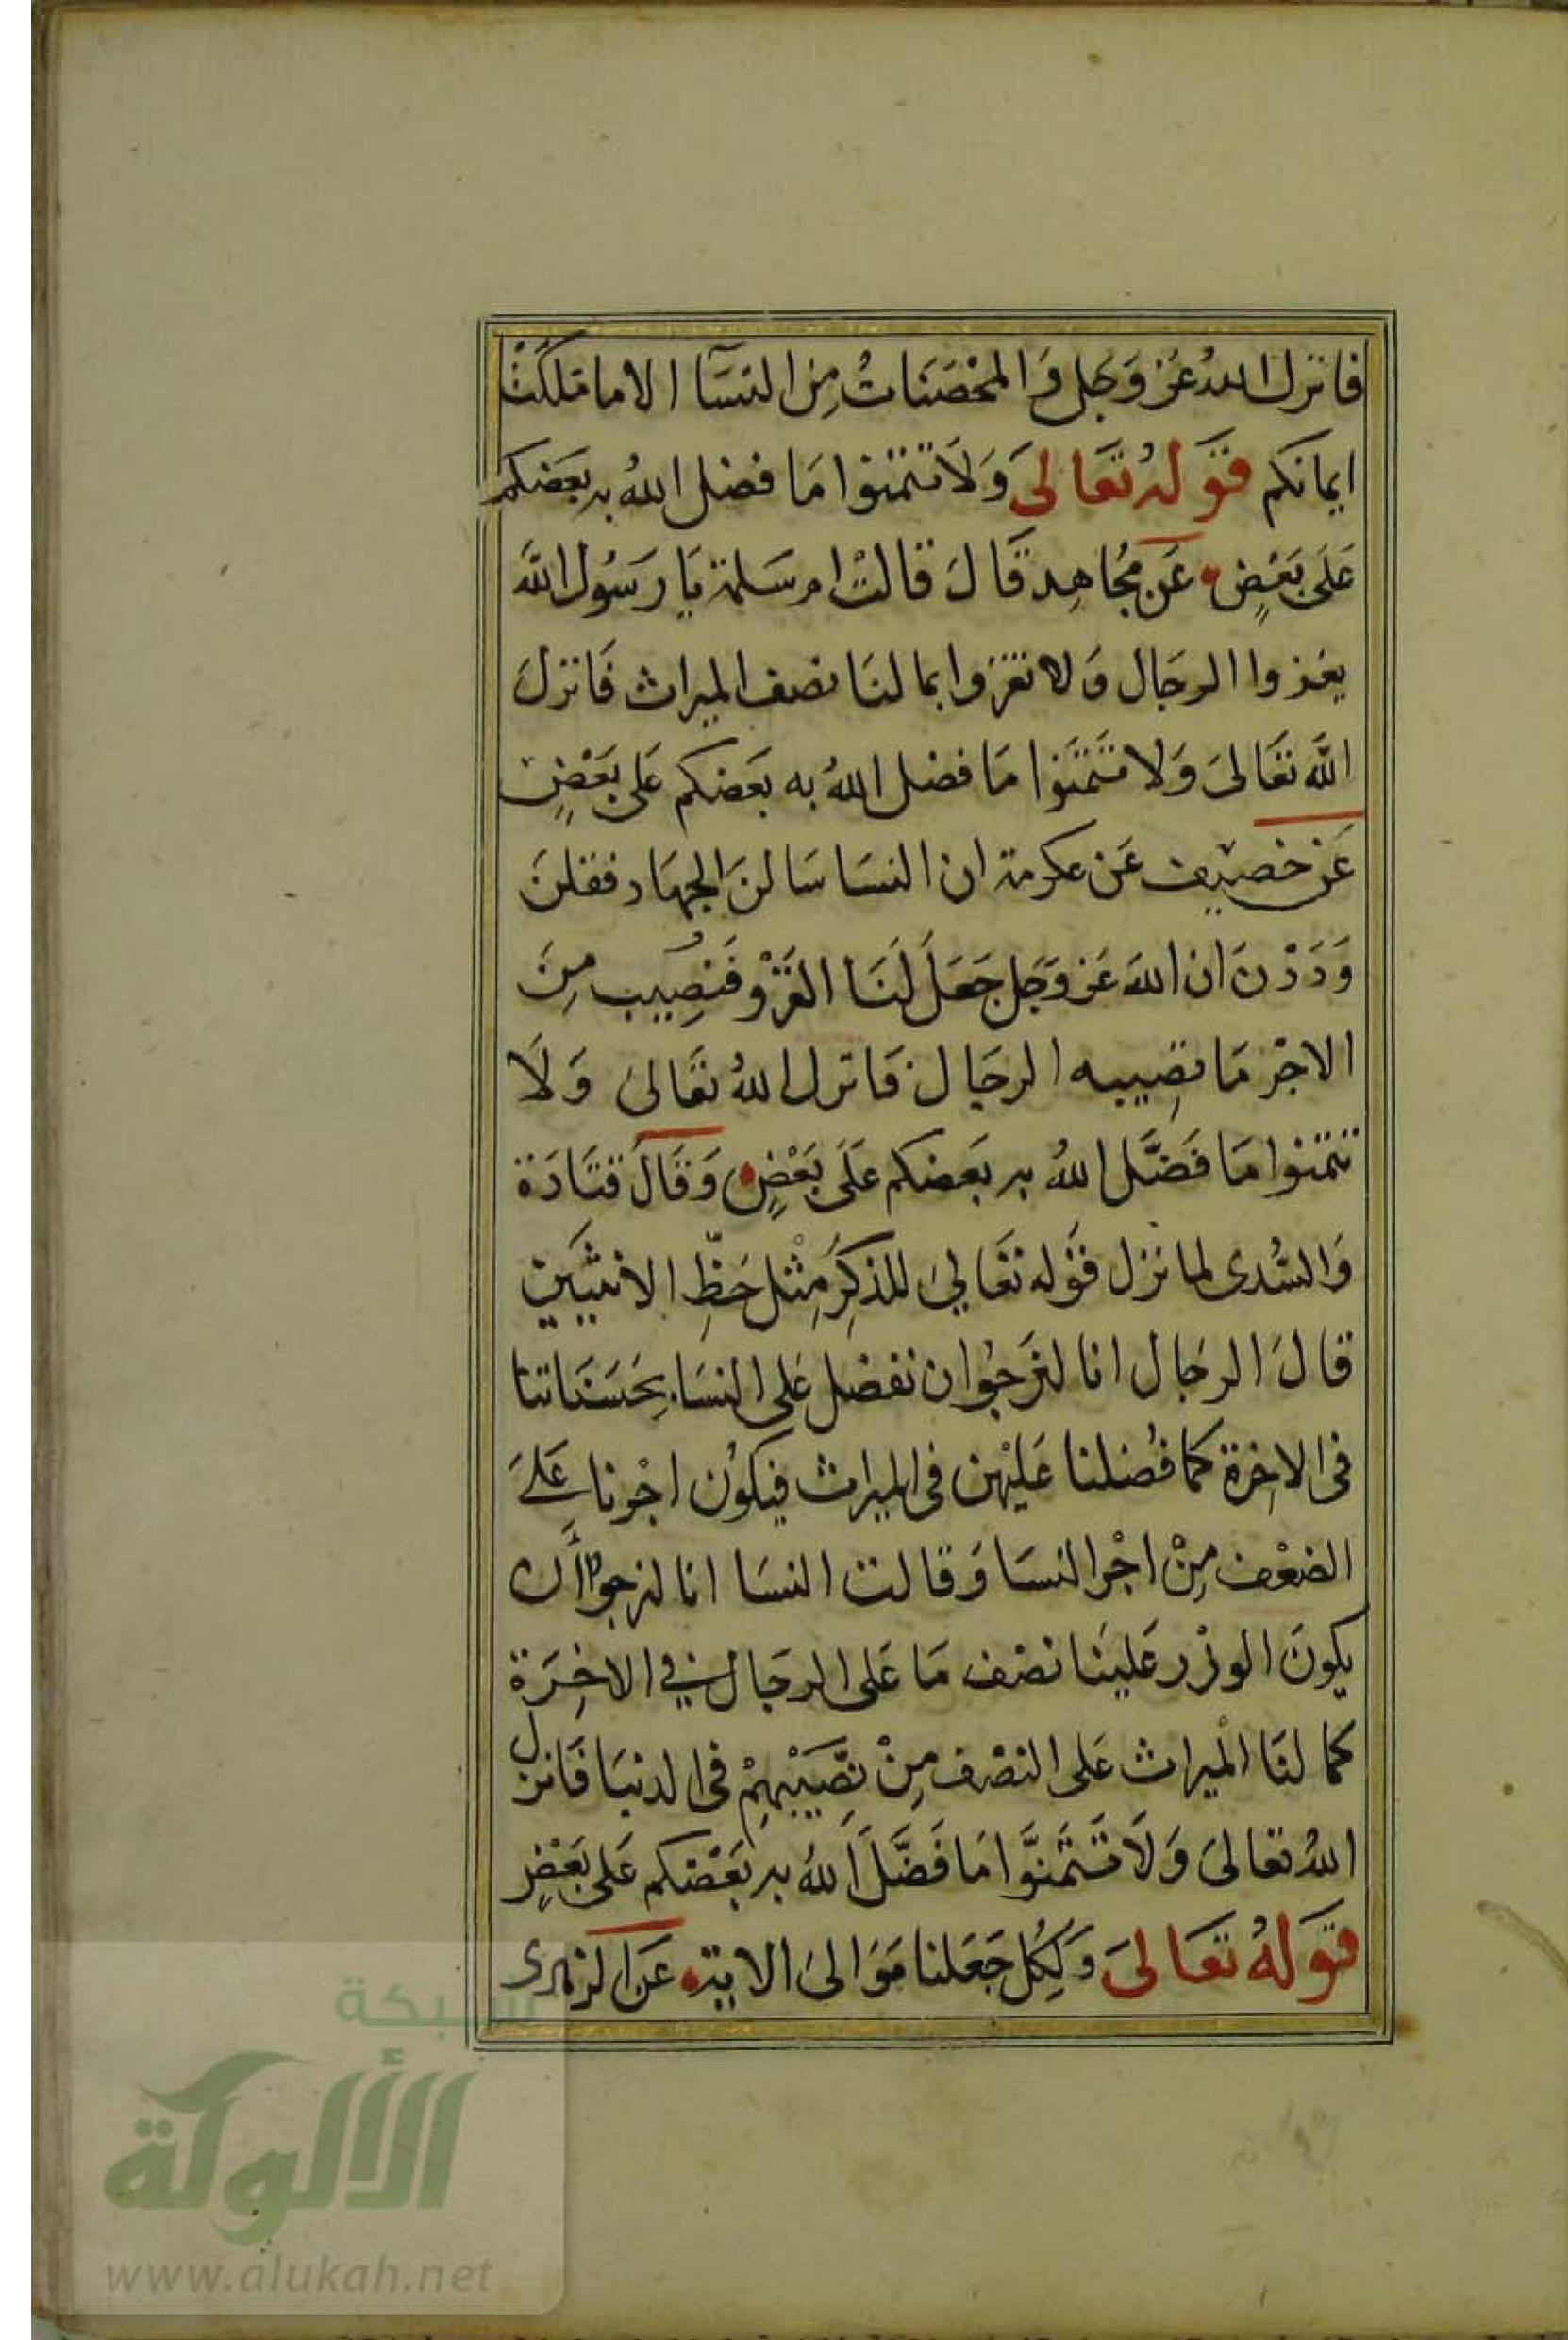 فانزل اللهُ عَز وَجَل وَالمحْصَنَاتُ مِن النسَآ الا ما ملكَتْ
ايمانكم قَولهُ تَعَالىَ وَلَا تتمنوا مَا فضل اللهُ به بَعَضكم
عَلَى بَعْضٍ عَن مجُاهِد قَالَ قالتْ ام سَلمة يَا رَسُول اللهَ
يغزوا الرجَال وَلا نغزوا بما لنَا نصف الميراث فَانزلَ
اللَّه تعَالىَ وَلا تَتَمَنوا مَا فضل اللهُ به بَعَضكم عَلى بَعْضٍ
عَن خصَيف عَن عكرمة ان النسَا سَالنَ الجهَاد فقلنَ
وَدَدْنَ ان اللهَ عَز وَجَل جَعَلَ لَنَا الغَزْو فَنصِيب مِنَ
الاجْر مَا نصِيبه الرجَال فَانزل اللهُ تعَالىَ وَلَا
تتمنوا مَا فَضَّل اللهُ به بَعَضكم عَلَى بَعْضٍ وَقَالَ قتَادَة
وَالسُّدى لما نزل قَوله تعَاليَ للذكِرَ مِثْل حَظِّ الانثيَين
قالَ الرجَال انا لنرَجُوا ان نفضل عَلى النسَا بِحَسَنَاتنا
فى الاخِرة كما فُضلنا عَليْهن فى الميراث فيكوُن اجْرنا عَلىَ
الضعْف مِنْ اجْر النسَا وَقالت النسَا انا لنرجوا أن
يكونَ الوزْر عَلينَا نصْف مَا عَلى الرجَال في الاخِرَة
كما لنَا الْميراث عَلى النصْف مِنْ نصِّيَبْهِمْ فى الدنيَا فَانزل
اللهُ تعَالىَ وَلَا تَتَمَنَّوا مَا فَضَّلَ اللهُ به بَعَضكم عَلى بَعْضٍ
قَولهُ تعَالىَ وَلِكُل جَعَلنا مَوَالىَ الاية عَن الزهرى
شبكة
الألوكة
www.alukah.net